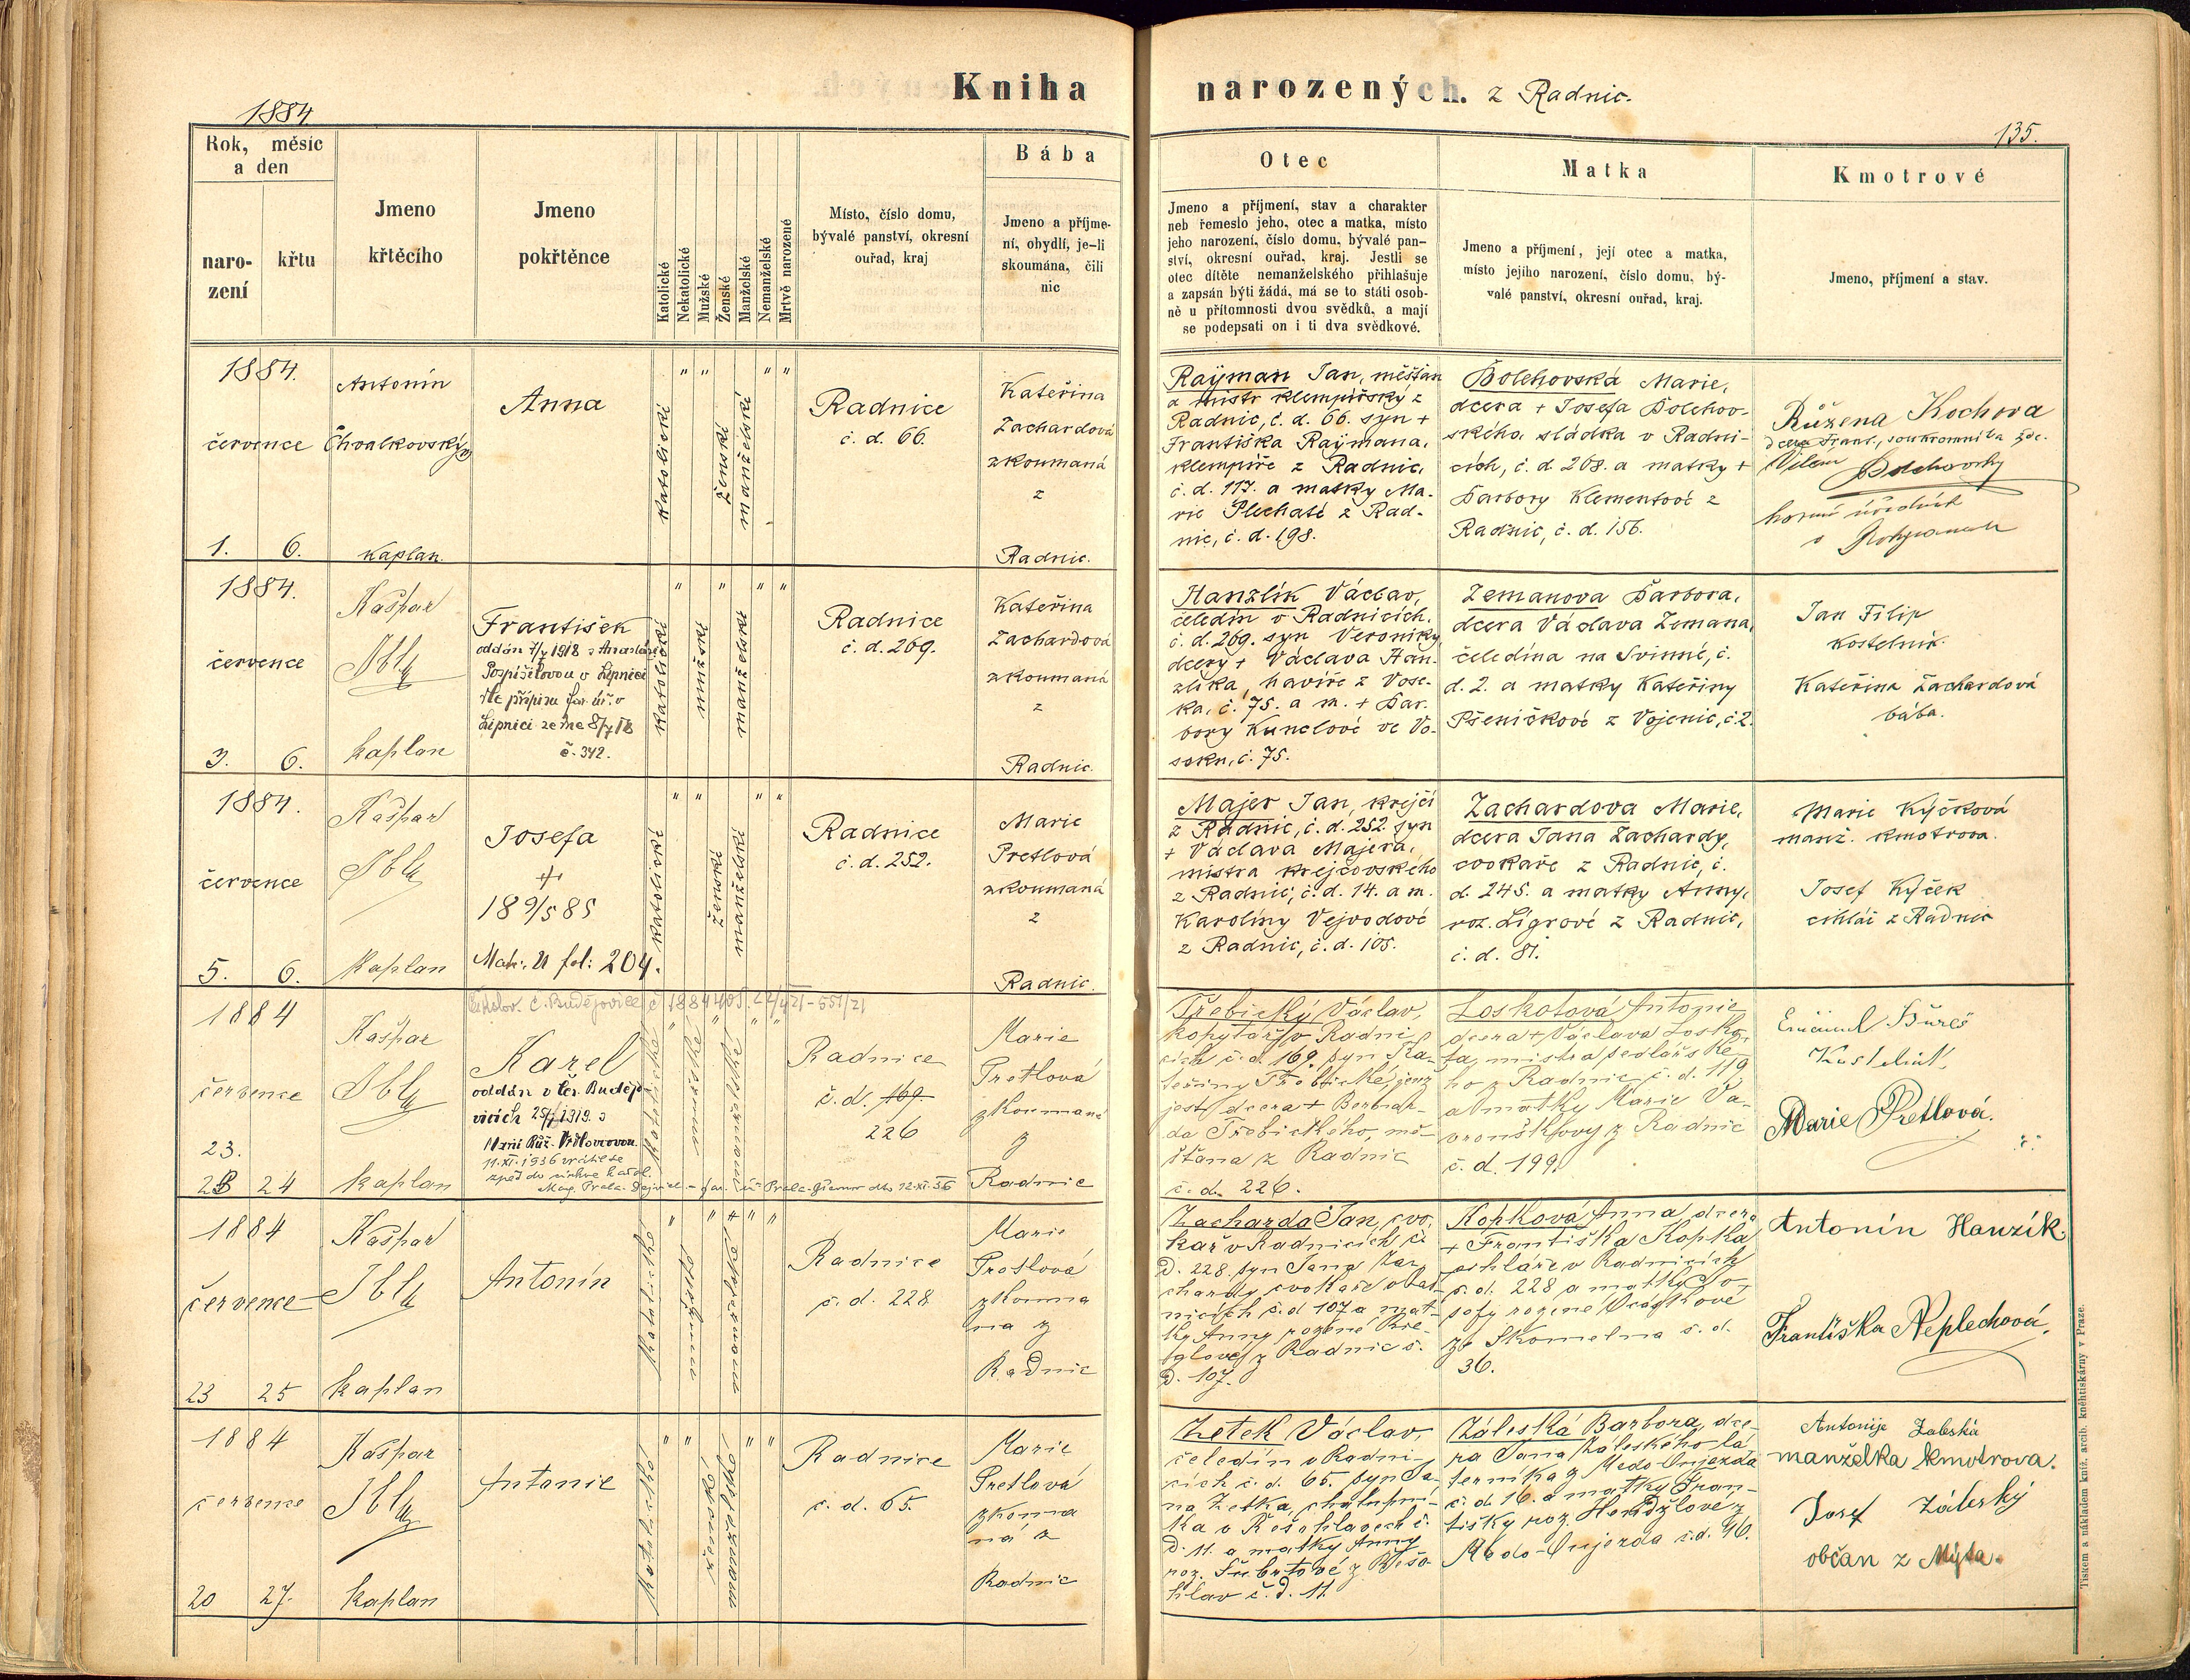 Kniha narozených. z Radnic.
1884
135.
Rok, měsíc
a den
naro-
zení
křtu
Jmeno
křtěcího
Jmeno
pokřtěnce
Katolické
Nekatolické
Mužské
Ženské
Manželské
Nemanželské
Mrtvě narozené
Místo, číslo domu,
bývalé panství, okresní
ouřad, kraj
Bába
Jmeno a příjme-
ní, obydlí, je-li
skoumána, čili
nic
Otec
Jmeno a příjmení, stav a charakter
neb řemeslo jeho, otec a matka, místo
jeho narození, číslo domu, bývalé pan-
ství, okresní ouřad, kraj. Jestli se
otec dítěte nemanželského přihlašuje
a zapsán býti žádá, má se to státi osob-
ně u přítomnosti dvou svědků, a mají
se podepsati on i ti dva svědkové.
Matka
Jmeno a příjmení, její otec a matka,
místo jejího narození, číslo domu, bý-
valé panství, okresní ouřad, kraj.
Kmotrové
Jmeno, příjmení a stav.
1884.
července
1. 6.
Antonín
Chvalkovský
kaplan.
Anna
katolické
ženské
manželské
Radnice
č. d. 66.
Kateřina
Zachardová
zkoumaná
z
Radnic.
Rayman Jan, měšťan
a mistr klempířský z
Radnic, č. d. 66. syn +
Františka Raymana,
klempíře z Radnic,
č. d. 117. a matky Ma-
rie Plechaté z Rad-
nic, č. d. 198.
Bolehovská Marie,
dcera + Josefa Bolehov-
ského, sládka v Radni-
cích, č. d. 268. a matky +
Barbory Klementové z
Radnic, č. d. 156.
Růžena Kochova
dcera Frant., soukromníka zde.
Vilém Bolehovský
horní úředník
v
1884.
července
3. 6.
Kašpar
Ibl
kaplan
František
oddán 7/7 1918 s Anastázií
Pospíšilovou v Lipnici
dle přípisu far. úř. v
Lipnici ze dne 8/7 18
č. 342.
katolické
mužské
manželské
Radnice
č. d. 269.
Kateřina
Zachardová
zkoumaná
z
Radnic.
Hanzlík Václav,
čeledín v Radnicích,
č. d. 269. syn Veroniky
dcery + Václava Han-
zlíka, havíře z Vose-
ka, č. 75. a m. + Bar-
bory Kunclové ve Vo-
seku, č. 75.
Zemanova Barbora,
dcera Václava Zemana,
čeledína na Svinné, č.
d. 2. a matky Kateřiny
Pšeničkové z Vojenic, č 2.
Jan Filip
kostelník.
Kateřina Zachardová
bába.
1884.
července
5. 6.
Kašpar
Ibl
kaplan
Josefa
+
189/5 85
Matr. U fol: 204.
katolické
ženské
manželské
Radnice
č. d. 252.
Marie
Pretlová
zkoumaná
z
Radnic.
Majer Jan, krejčí
z Radnic, č. d. 252. syn
+ Václava Majera,
mistra krejčovského
z Radnic, č. d. 14. a m.
Karolíny Vejvodové
z Radnic, č. d. 105.
Zachardova Marie,
dcera Jana Zachardy,
cvokaře z Radnic, č.
d. 245. a matky Anny,
roz. Ligrové z Radnic,
č. d. 81.
Marie Kýčková
manž. kmotrova.
Josef Kýček
cihlář z Radnic
1884
července
23.
24
Kašpar
Ibl
kaplan
Karel
oddán v Čes. Budějo
vicích 1919. s
11.XI.1936 vrátil se
zpět do církve katol.
katolické
manželské
Radnice
č. d. 169
226
Marie
Pretlová
zkoumaná
z
Radnic
Třebický Václav,
kopytář v Radni-
cích č. d. 169, syn Ka-
teřiny Třebické, jenž
jest dcera + Bernar-
da Třebického, mě-
šťana z Radnic
č. d. 226.
Loskotová Antonie
dcera + Václava Losko-
ta, mistra sedlářské-
ho z Radnic č. d. 119
a matky Marie Va-
vrouškovy z Radnic
č. d. 199.
Emanuel Bureš
Marie Pretlová.
1884
července
23 25
Kašpar
Ibl
kaplan
Antonín
katolické
manželské
Radnice
č. d. 228
Marie
Pretlová
zkouma
na z
Radnic
Zacharda Jan, cvo-
kař v Radnicích č.
d. 228. syn Jana Za-
chardy cvokaře v Rad-
nicích č. d 107 a mat-
ky Anny rozené
z Radnic č.
d. 107.
Kopková Anna dcera
+ Františka Kopka
v Radnicích
č. d. 228 a matky Jo-
sefy rozené
ze Skomelna č. d.
36.
Antonín Hanzík.
Františka Neplechová.
1884
července
20 27.
Kašpar
Ibl
kaplan
Antonie
katolické
ženské
manželské
Radnice
č. d. 65.
Marie
Pretlová
zkouma
ná z
Radnic
Zetek Václav,
čeledín v Radni-
cích č. d. 65. syn Ja-
na Zetka, chalupní-
ka v Řešohlavech č.
d. 11. a matky Anny
roz. Šubrtové z Řešo
hlav č. d. 11.
Záleská Barbora, dce-
ra Jana Záleského
z Medo-Oujezda
č. d. 16. a matky Fran-
tišky roz.
Medo-Oujezda č. d. 46.
Antonije Zaleská
manželka kmotrova.
Josef Záleský
občan z Mýta.
Tiskem a nákladem kníž. arcib. kněhtiskárny v Praze.